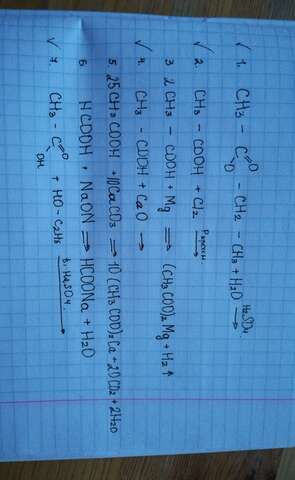 √ 1. CH3 - C =O O - CH2 - CH3 + H2O H2SO4 →
√ 2. CH3 - COOH + Cl2 Pкрасн. →
3 2CH3 - COOH + Mg ⇒ (CH3COO)2Mg + H2↑
√ 4. CH3 - COOH + CaO →
5. 25CH3COOH + 10CaCO3 ⇒ 10(CH3COO)2Ca + 20CO2 + 2H2O
6 HCOOH + NaOH ⇒ HCOONa + H2O
√ 7. CH3 - C =O OH + HO - C2H5 H2SO4 →